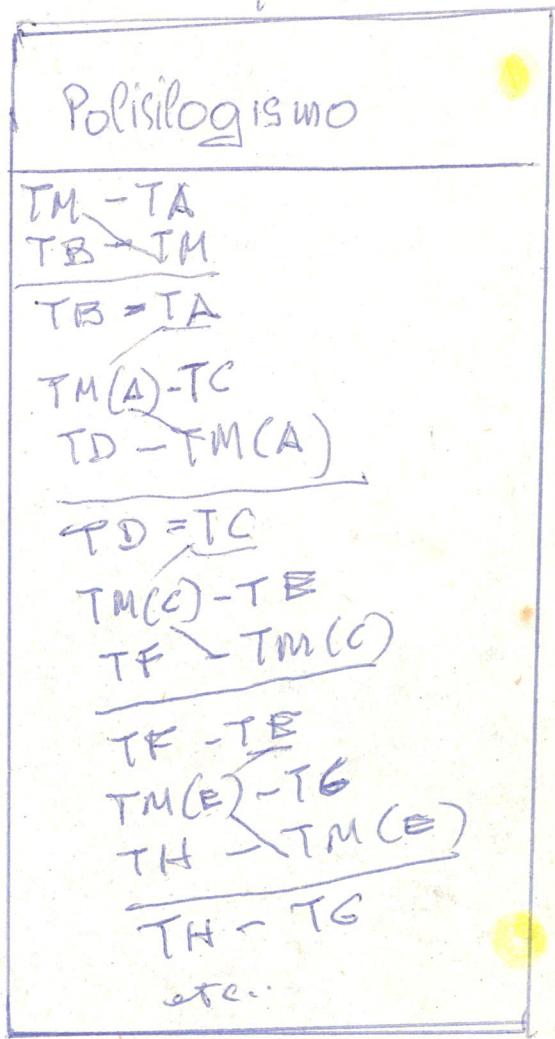 Polisilogismo
TM - TA
TB - TM
TB = TA
TM(A)-TC
TD - TM(A)
TD = TC
TM(C) - TE
TF - TM(C)
TF - TE
TM(E) - TG
TH - TM(E)
TH - TG
etc..